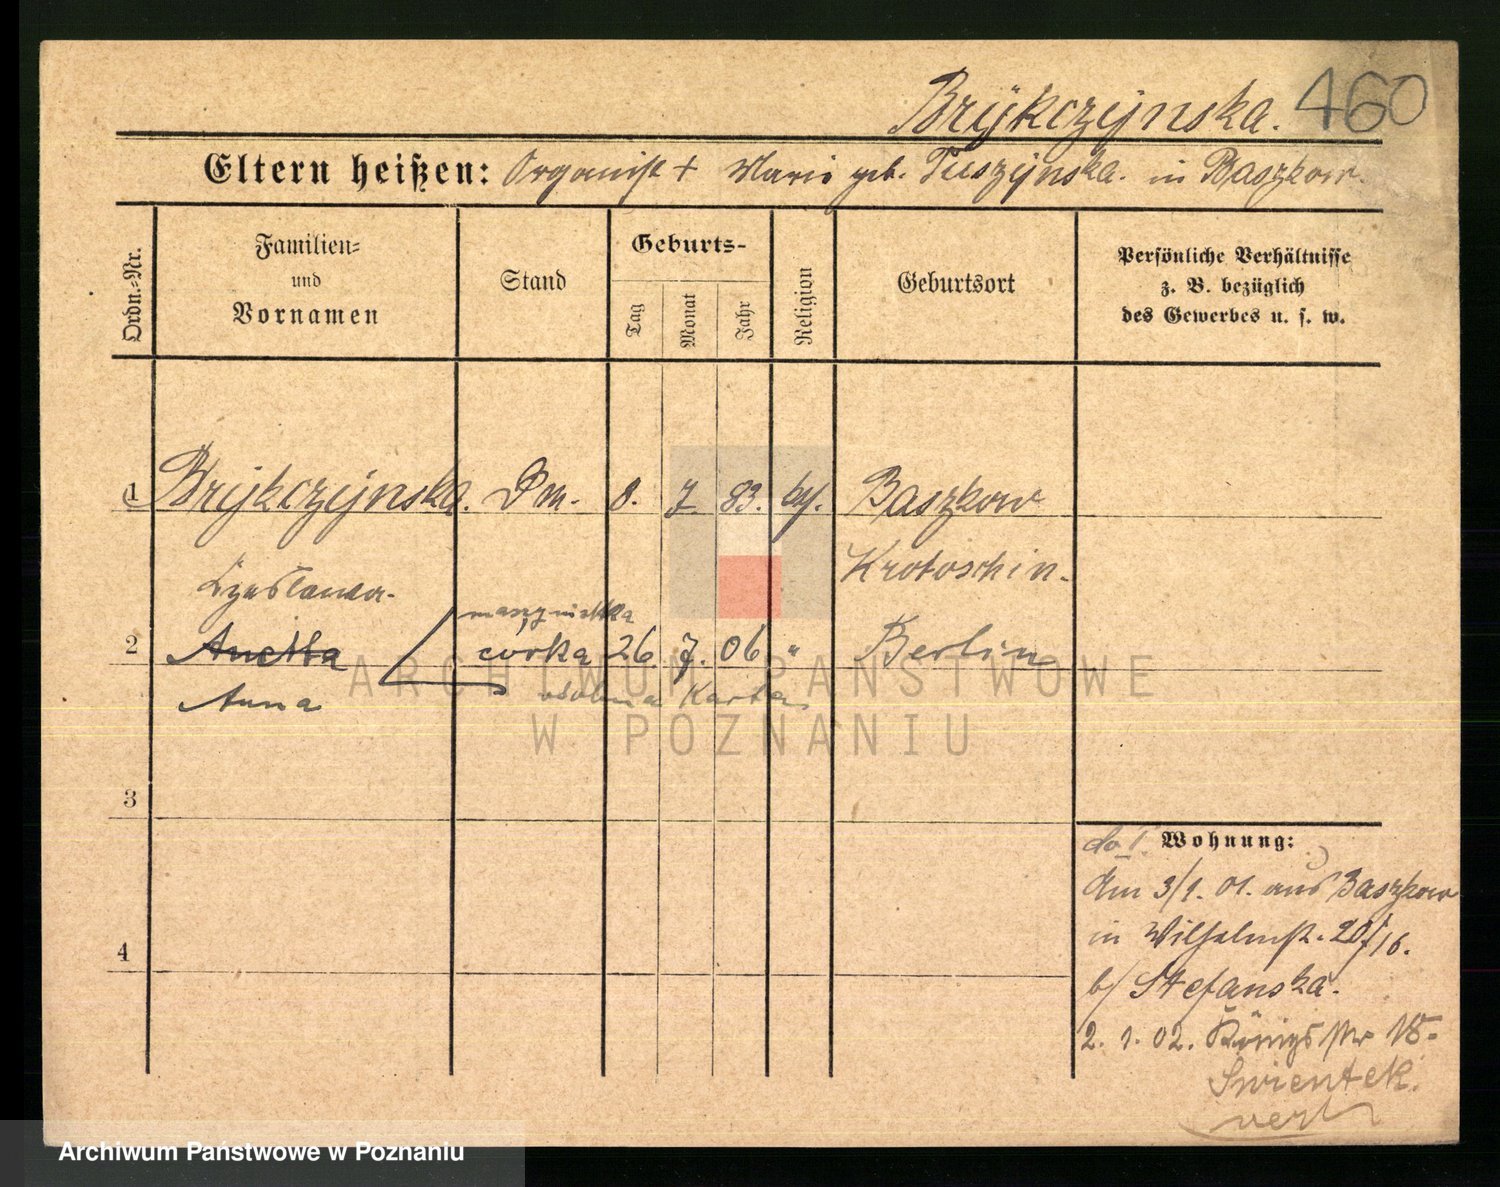 Brÿkczÿnska. 460
Eltern heißen: Organist + Marie geb. Tuszÿnska. in Baszkow.
Ordn.=Nr.
Familien= und Vornamen
Stand
Geburts-
Tag
Monat
Jahr
Religion
Geburtsort
Persönliche Verhältnisse
z. B. bezüglich
des Gewerbes u. s. w.
1 Brÿkczÿnska. 8. 7. 83. Baszkow
Krotoschin.
Czeslawa.
2 Anetka córka 26. 7. 06 " Berlin
Anna osobna Karta
3
4
Wohnung:
Am 3/1. 01. aus Baszkow
in Wilhelmstr. 16.
b/ Stefanska.
2. 1. 02. Königsstr 18.
Swientek.
ARCHIWUM PAŃSTWOWE
W POZNANIU
Archiwum Państwowe w Poznaniu